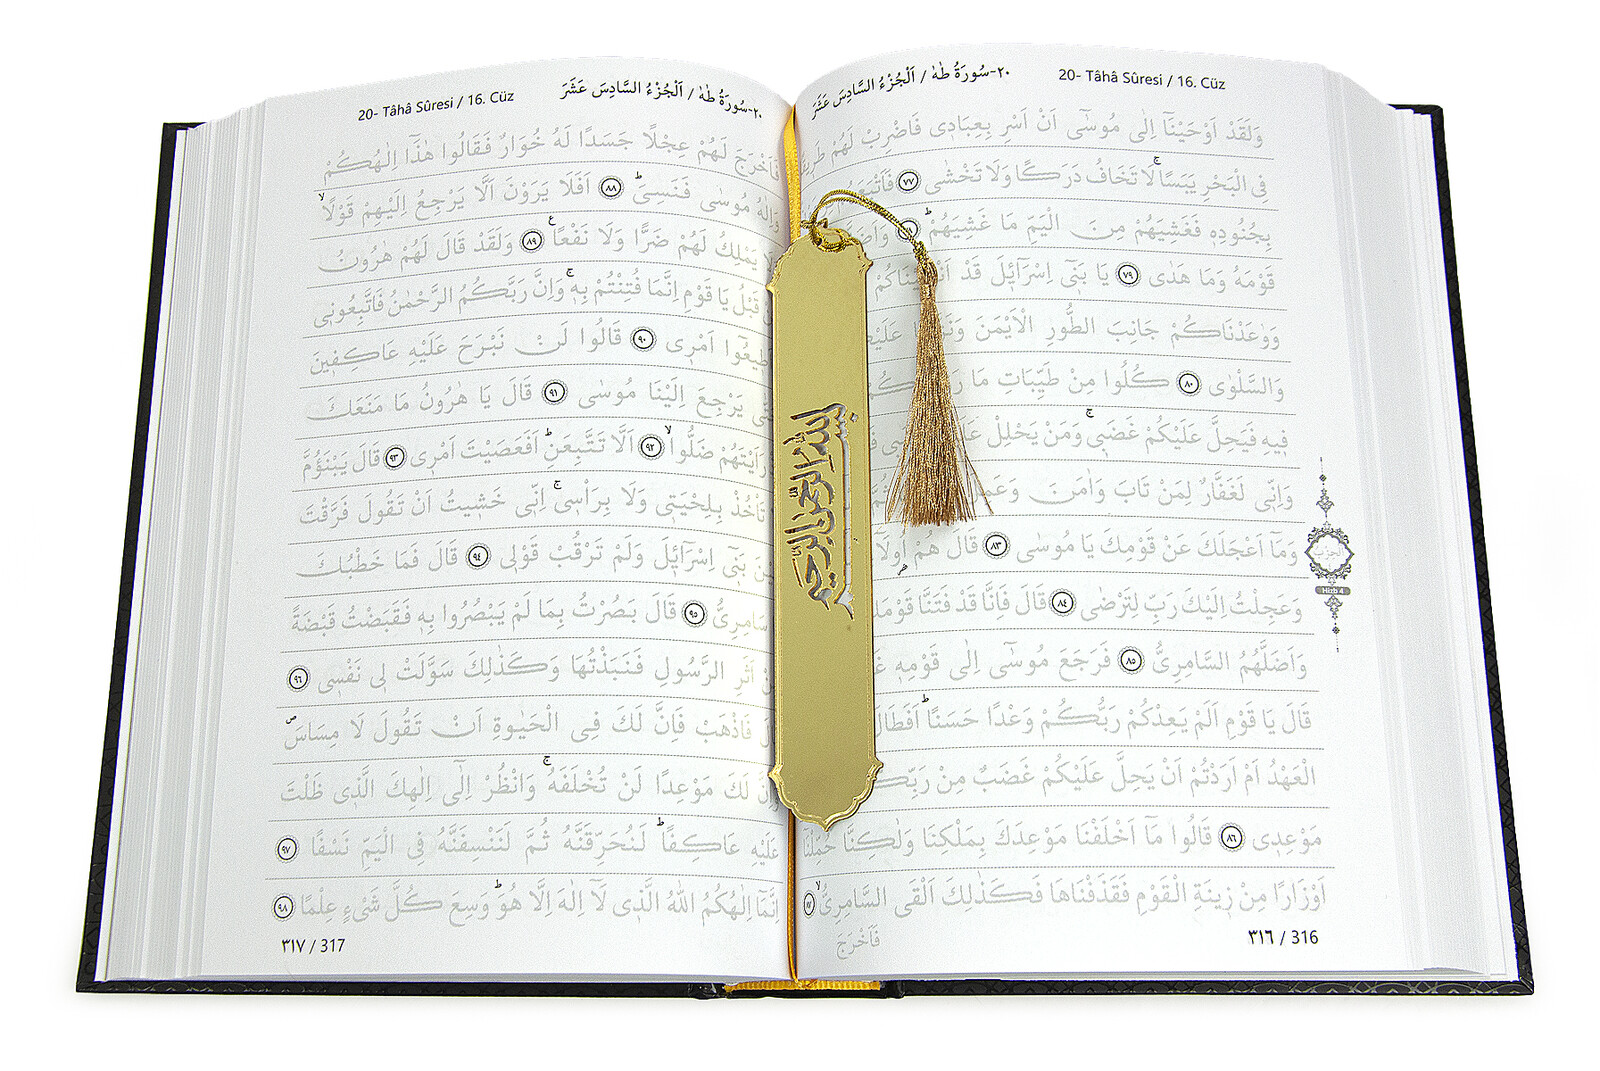 ٢٠-سُورَةُ طٰهٰ / اَلْجُزْءُ السَّادِسَ عَشَرَ
20- Tâhâ Sûresi / 16. Cüz
وَلَقَدْ اَوْحَيْنَٓا اِلٰى مُوسٰٓى اَنْ اَسْرِ بِعِبَادٖى فَاضْرِبْ لَهُمْ طَرٖيقًا
فِى الْبَحْرِ يَبَسًاۚ لَا تَخَافُ دَرَكًا وَلَا تَخْشٰى ٧٧ فَاَتْبَعَهُمْ
بِجُنُودِهٖ فَغَشِيَهُمْ مِنَ الْيَمِّ مَا غَشِيَهُمْۜ ٧٨ وَاَضَلَّ
قَوْمَهُ وَمَا هَدٰى ٧٩ يَا بَنٖٓى اِسْرَٓائٖلَ قَدْ اَنْجَيْنَاكُمْ
وَوٰعَدْنَاكُمْ جَانِبَ الطُّورِ الْاَيْمَنَ
وَالسَّلْوٰى ٨٠ كُلُوا مِنْ طَيِّبَاتِ مَا
فٖيهِ فَيَحِلَّ عَلَيْكُمْ غَضَبٖىۚ وَمَنْ يَحْلِلْ
وَاِنّٖى لَغَفَّارٌ لِمَنْ تَابَ وَاٰمَنَ
وَمَٓا اَعْجَلَكَ عَنْ قَوْمِكَ يَا مُوسٰى ٨٣ قَالَ هُمْ اُولَٓاءِ
وَعَجِلْتُ اِلَيْكَ رَبِّ لِتَرْضٰى ٨٤ قَالَ فَاِنَّا قَدْ فَتَنَّا قَوْمَكَ
وَاَضَلَّهُمُ السَّامِرِىُّ ٨٥ فَرَجَعَ مُوسٰٓى اِلٰى قَوْمِهٖ
قَالَ يَا قَوْمِ اَلَمْ يَعِدْكُمْ رَبُّكُمْ وَعْدًا حَسَنًاۜ اَفَطَالَ
الْعَهْدُ اَمْ اَرَدْتُمْ اَنْ يَحِلَّ عَلَيْكُمْ غَضَبٌ مِنْ رَبِّكُمْ
مَوْعِدٖى ٨٦ قَالُوا مَٓا اَخْلَفْنَا مَوْعِدَكَ بِمَلْكِنَا وَلٰكِنَّا حُمِّلْنَٓا
اَوْزَارًا مِنْ زٖينَةِ الْقَوْمِ فَقَذَفْنَاهَا فَكَذٰلِكَ اَلْقَى السَّامِرِىُّۙ ٨٧
فَاَخْرَجَ
٣١٦ / 316
الحزب
Hizb 4
بسم الله الرحمن الرحيم
٢٠-سُورَةُ طٰهٰ / اَلْجُزْءُ السَّادِسَ عَشَرَ
20- Tâhâ Sûresi / 16. Cüz
فَاَخْرَجَ لَهُمْ عِجْلًا جَسَدًا لَهُ خُوَارٌ فَقَالُوا هٰذَٓا اِلٰهُكُمْ
وَاِلٰهُ مُوسٰى فَنَسِىَۜ ٨٨ اَفَلَا يَرَوْنَ اَلَّا يَرْجِعُ اِلَيْهِمْ قَوْلًاۙ
يَمْلِكُ لَهُمْ ضَرًّا وَلَا نَفْعًاࣖ ٨٩ وَلَقَدْ قَالَ لَهُمْ هٰرُونُ
قَبْلُ يَا قَوْمِ اِنَّمَا فُتِنْتُمْ بِهٖۚ وَاِنَّ رَبَّكُمُ الرَّحْمٰنُ فَاتَّبِعُونٖى
وَاَطٖيعُٓوا اَمْرٖى ٩٠ قَالُوا لَنْ نَبْرَحَ عَلَيْهِ عَاكِفٖينَ
حَتّٰى يَرْجِعَ اِلَيْنَا مُوسٰى ٩١ قَالَ يَا هٰرُونُ مَا مَنَعَكَ
رَاَيْتَهُمْ ضَلُّواۙ ٩٢ اَلَّا تَتَّبِعَنِۜ اَفَعَصَيْتَ اَمْرٖى ٩٣ قَالَ يَبْنَؤُمَّ
تَأْخُذْ بِلِحْيَتٖى وَلَا بِرَأْسٖىۚ اِنّٖى خَشٖيتُ اَنْ تَقُولَ فَرَّقْتَ
بَيْنَ بَنٖٓى اِسْرَٓائٖلَ وَلَمْ تَرْقُبْ قَوْلٖى ٩٤ قَالَ فَمَا خَطْبُكَ
سَامِرِىُّ ٩٥ قَالَ بَصُرْتُ بِمَا لَمْ يَبْصُرُوا بِهٖ فَقَبَضْتُ قَبْضَةً
مِنْ اَثَرِ الرَّسُولِ فَنَبَذْتُهَا وَكَذٰلِكَ سَوَّلَتْ لٖى نَفْسٖى ٩٦
قَالَ فَاذْهَبْ فَاِنَّ لَكَ فِى الْحَيٰوةِ اَنْ تَقُولَ لَا مِسَاسَۖ
وَاِنَّ لَكَ مَوْعِدًا لَنْ تُخْلَفَهُۚ وَانْظُرْ اِلٰٓى اِلٰهِكَ الَّذٖى ظَلْتَ
عَلَيْهِ عَاكِفًاۜ لَنُحَرِّقَنَّهُ ثُمَّ لَنَنْسِفَنَّهُ فِى الْيَمِّ نَسْفًا ٩٧
اِنَّمَٓا اِلٰهُكُمُ اللّٰهُ الَّذٖى لَٓا اِلٰهَ اِلَّا هُوَۜ وَسِعَ كُلَّ شَىْءٍ عِلْمًا ٩٨
٣١٧ / 317